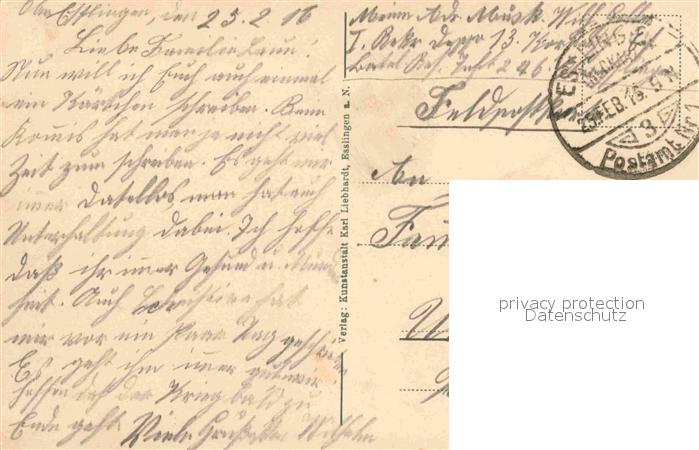 Ober Esslingen, den 25.2.16
Liebe Familie
Nun will ich Euch auch einmal
ein Kärtchen schreiben. Beim
Komis hat man ja nicht viel
Zeit zum schreiben. Es geht mir
imer datellos man hat auch
Unterhaltung dabei. Ich hoffe
daß ihr imer Gesund u.
seit. Auch hat
mir vor ein paar Tag geschrieben
Es geht ihm imer gut wir
hoffen daß der Krieg bald zu
Ende geht Viele Grüße Wilhelm
Verlag: Kunstanstalt Karl Liebhardt, Esslingen a. N.
Meine Adr. Musk. Wilh.
I. Rekr. Depo 13.
Batl. Res. Inft 246
Feldpost
An
Fam
ESSLINGEN
NECKAR
25.FEB.16.
3
Postamt Nr
privacy protection
Datenschutz